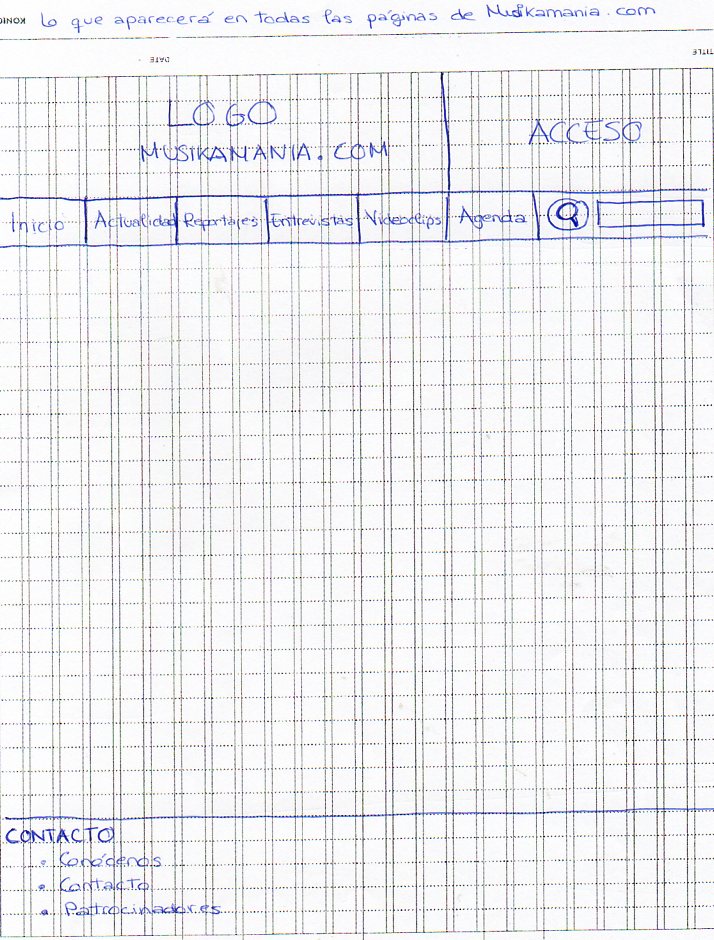 Lo que aparecerá en todas las páginas de Musikamania.com
DATE
TITLE
LOGO
ACCESO
MUSIKAMANIA.COM
Inicio Actualidad Reportajes Entrevistas Videoclips Agenda
CONTACTO
• Conócenos
• Contacto
• Patrocinadores